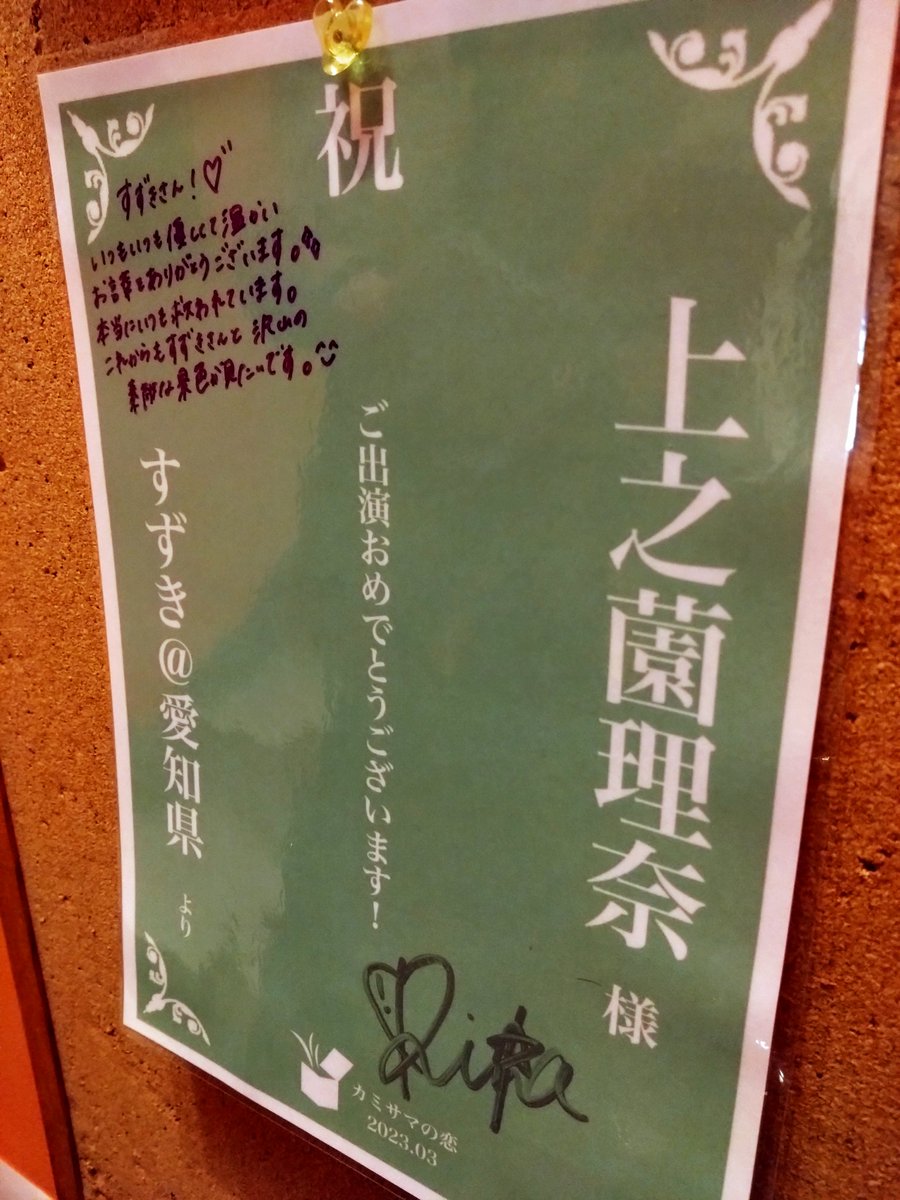 祝
上之薗理奈 様
ご出演おめでとうございます!
すずき@愛知県 より
すずきさん!♡
いつもいつも優しくて温かい
お言葉をありがとうございます。
本当にいつも救われています。
これからもすずきさんと沢山の
素敵な景色が見たいです。
Rina
カミサマの恋
2023.03